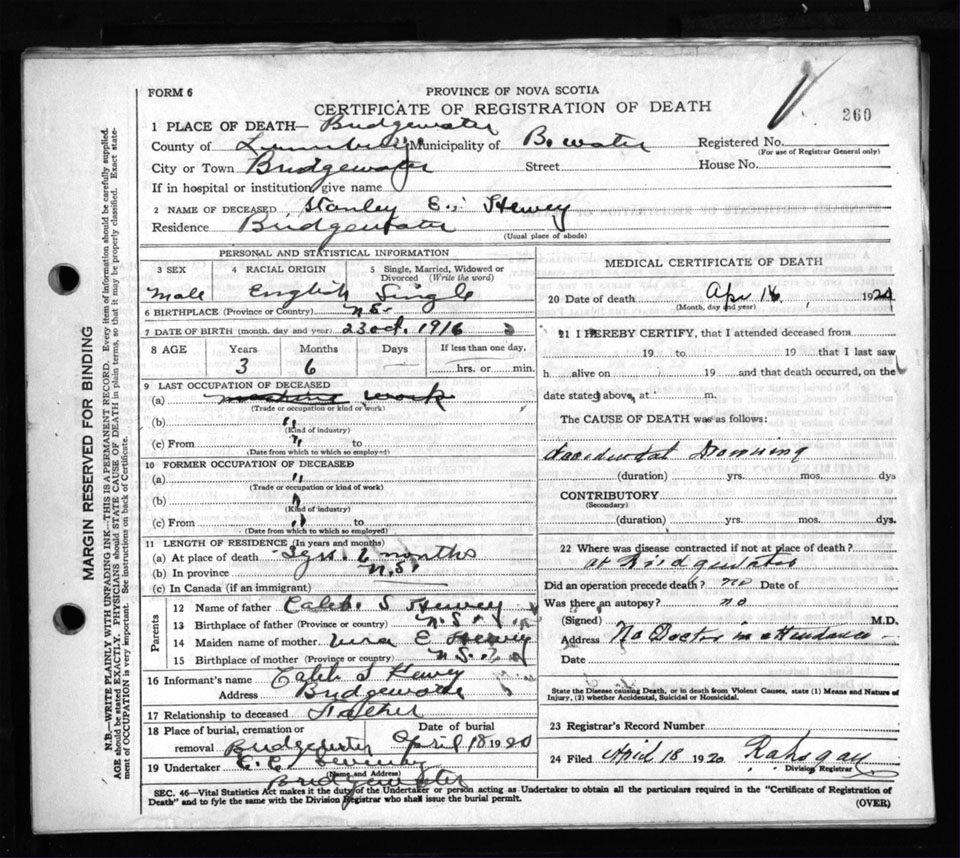 FORM 6
PROVINCE OF NOVA SCOTIA
CERTIFICATE OF REGISTRATION OF DEATH
260
1 PLACE OF DEATH— Bridgewater
County of Lunenburg Municipality of B. water Registered No.
(For use of Registrar General only)
City or Town Bridgewater Street House No.
If in hospital or institution, give name
2 NAME OF DECEASED Stanley E. Hewey
Residence Bridgewater
(Usual place of abode)
PERSONAL AND STATISTICAL INFORMATION
3 SEX 4 RACIAL ORIGIN 5 Single, Married, Widowed or Divorced (Write the word)
Male English Single
6 BIRTHPLACE (Province or Country) N.S.
7 DATE OF BIRTH (month, day and year) 23 oct. 1916
8 AGE Years Months Days If less than one day,
3 6 — hrs. or min.
9 LAST OCCUPATION OF DECEASED
(a) work
(Trade or occupation or kind or work)
(b) "
(Kind of industry)
(c) From " to
(Date from which to which so employed)
10 FORMER OCCUPATION OF DECEASED
(a) "
(Trade or occupation or kind of work)
(b) "
(Kind of industry)
(c) From " to
(Date from which to which so employed)
11 LENGTH OF RESIDENCE (In years and months)
(a) At place of death 3 yrs. 6 months
(b) In province N.S.
(c) In Canada (if an immigrant)
Parents
12 Name of father Caleb S Hewey
13 Birthplace of father (Province or country) N.S.
14 Maiden name of mother Vera E Hewey
15 Birthplace of mother (Province or country) N.S.
16 Informant's name Caleb S Hewey
Address Bridgewater
17 Relationship to deceased Father
18 Place of burial, cremation or removal Bridgewater Date of burial April 18 1920
19 Undertaker
(Name and Address)
Bridgewater
MEDICAL CERTIFICATE OF DEATH
20 Date of death Apr 16, 1920
(Month, day and year)
21 I HEREBY CERTIFY, that I attended deceased from
19 to 19 that I last saw
h alive on 19 and that death occurred, on the
date stated above, at m.
The CAUSE OF DEATH was as follows:
Accidental Drowning
(duration) yrs. mos. dys
CONTRIBUTORY
(Secondary)
(duration) yrs. mos. dys.
22 Where was disease contracted if not at place of death?
at Bridgewater
Did an operation precede death? no Date of
Was there an autopsy? no
(Signed) M.D.
Address No Doctor in attendance
Date
State the Disease causing Death, or in death from Violent Causes, state (1) Means and Nature of
Injury, (2) whether Accidental, Suicidal or Homicidal.
23 Registrar's Record Number
24 Filed April 18 1920
Division Registrar
SEC. 46—Vital Statistics Act makes it the duty of the Undertaker or person acting as Undertaker to obtain all the particulars required in the "Certificate of Registration of
Death" and to fyle the same with the Division Registrar who shall issue the burial permit.
(OVER)
MARGIN RESERVED FOR BINDING
N.B.—WRITE PLAINLY WITH UNFADING INK—THIS IS A PERMANENT RECORD. Every item of information should be carefully supplied.
AGE should be stated EXACTLY. PHYSICIANS should STATE CAUSE OF DEATH in plain terms, so that it may be properly classified. Exact state-
ment of OCCUPATION is very important. See instructions on back of Certificate.